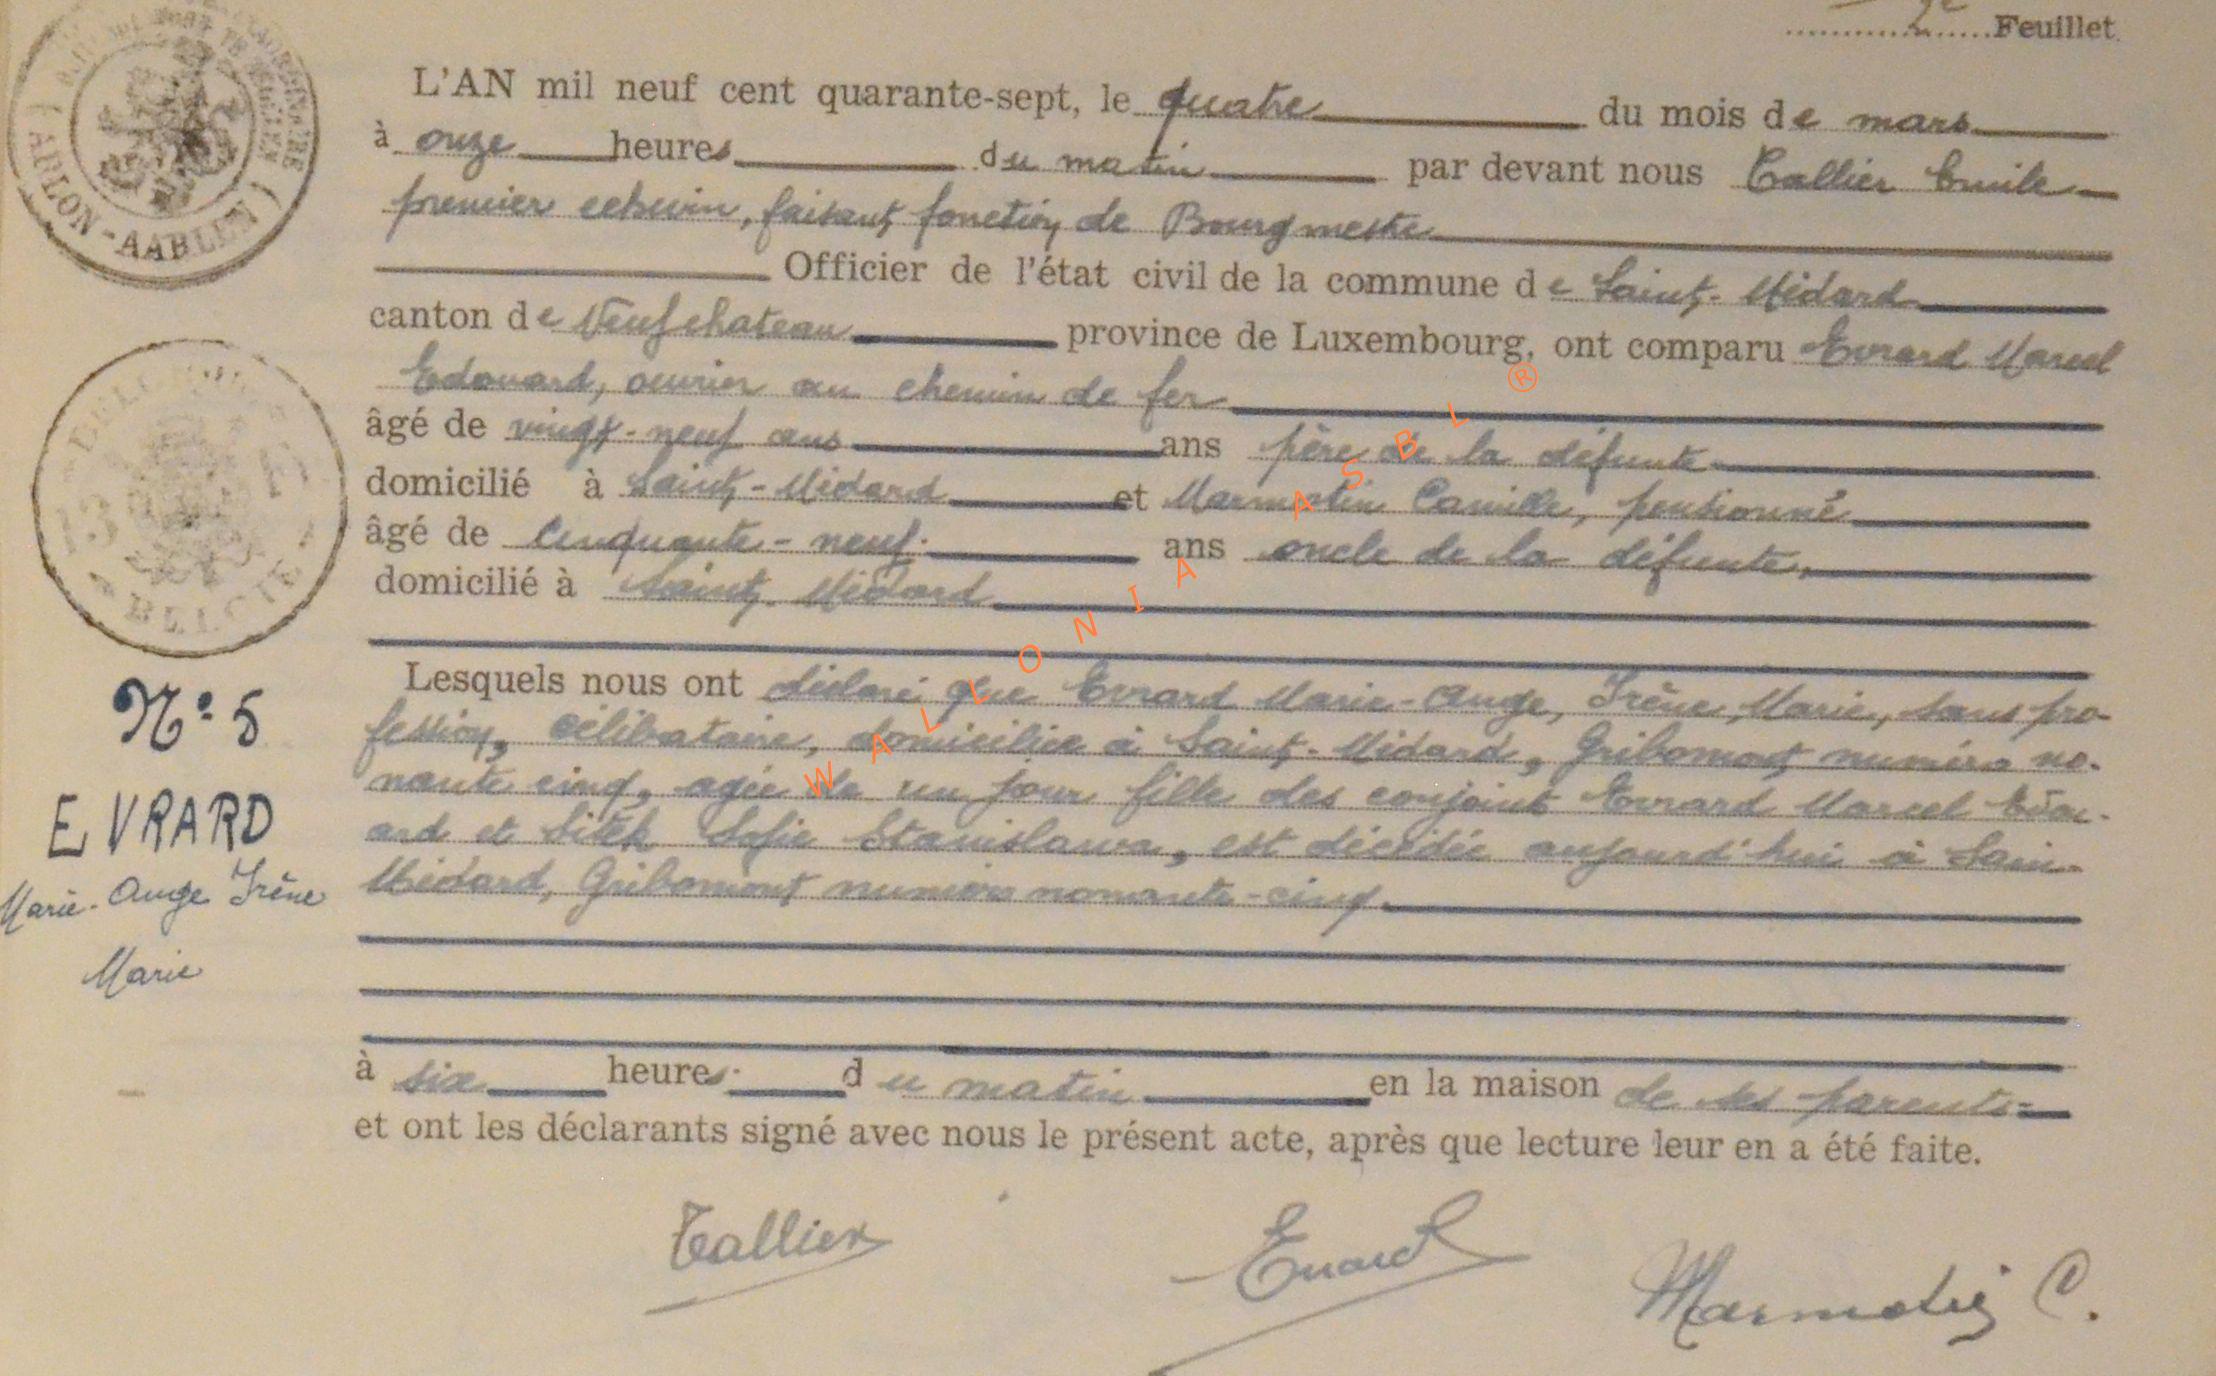 2e Feuillet
L'AN mil neuf cent quarante-sept, le quatre du mois de mars
à onze heures du matin par devant nous Tallier Emile
premier echevin, faisant fonction de Bourgmestre
Officier de l'état civil de la commune de Saint-Médard
canton de Neufchateau province de Luxembourg, ont comparu Evrard Marcel
Edouard, ouvrier au chemin de fer
âgé de vingt-neuf ans ans père de la défunte
domicilié à Saint-Médard et Marmotin Camille, pensionné
âgé de cinquante-neuf ans oncle de la défunte,
domicilié à Saint-Médard
Lesquels nous ont déclaré que Evrard Marie-Ange, Irène, Marie, sans pro-
fession, célibataire, domiciliée à Saint-Médard, Gribomont numéro no-
nante cinq, agée de un jour fille des conjoint Evrard Marcel Edou-
ard et Sitek Sofie Stanislawa, est décédée aujourd'hui à Sain-
Médard, Gribomont numéro nonante-cinq.
à six heures du matin en la maison de ses parents
et ont les déclarants signé avec nous le présent acte, après que lecture leur en a été faite.
Tallier Evrard Marmotin C.
ARLON-AARLEN
BELGIE
N° 5
EVRARD
Marie-Ange Irène
Marie
WALLONIA ASBL ®